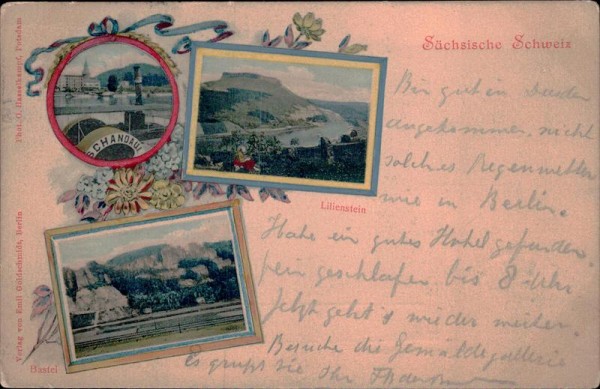 Sächsische Schweiz
Phot. O. Hasselkampf, Potsdam
SCHANDAU
Lilienstein
Verlag von Emil Goldschmidt, Berlin
Bastei
Bin gut in
angekommen, nicht
solches Regenwetter
wie in Berlin.
Habe ein gutes Hotel gefunden,
fein geschlafen bis 8 Uhr
Jetzt geht's wieder weiter.
Besuche die Gemäldegallerie
Es grüßt Sie Ihr